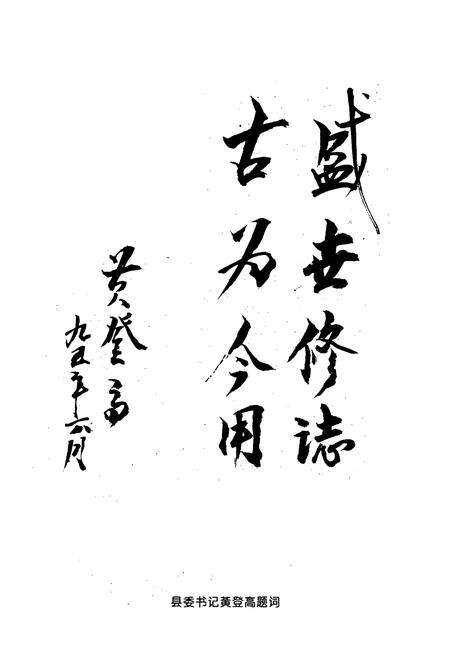 盛世修誌
古为今用
黄登高
九五年六月
县委书记黄登高题词